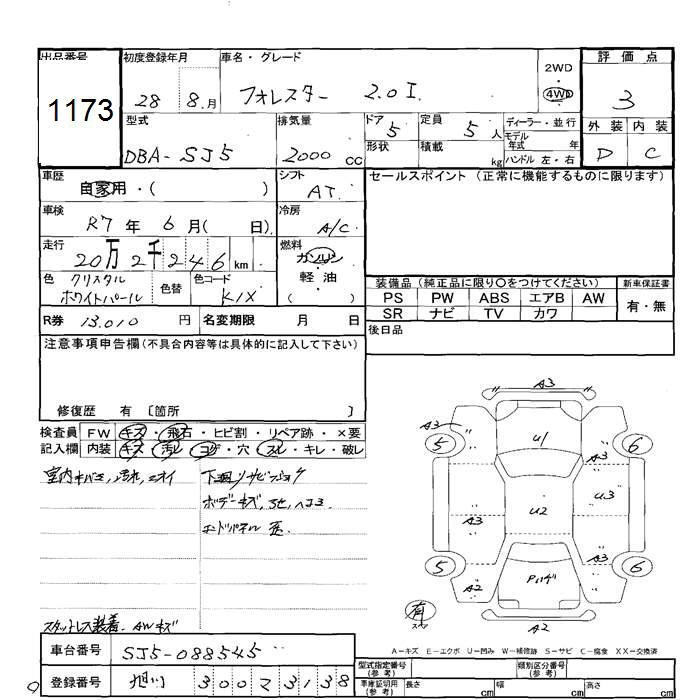 出品番号
1173
初度登録年月
28 8.月
車名・グレード
フォレスター 2.0I
2WD
4WD
評価点
3
外装 内装
D C
型式
DBA-SJ5
排気量
2000 cc
ドア
5
形状
定員
5 人
積載
kg
ディーラー・並行
モデル
年式 年
ハンドル 左・右
車歴
自家用・( )
シフト
AT.
セールスポイント (正常に機能するものに限ります)
車検
R7 年 6 月( 日)
冷房
A/C
走行
20万2千246 km
燃料
ガソリン
軽油
( )
色
クリスタル
ホワイトパール
色替
色コード
K1X
装備品(純正品に限り○をつけてください)
PS PW ABS エアB AW
SR ナビ TV カワ
新車保証書
有・無
R券 13.010 円
名変期限 月 日
後日品
注意事項申告欄(不具合内容等は具体的に記入して下さい)
修復歴 有 〔箇所 〕
検査員
記入欄
FW キズ・飛石・ヒビ割・リペア跡・×要
内装 キズ・汚レ・コゲ・穴・スレ・キレ・破レ
室内キバミ,汚れ,ニオイ
下廻りサビ
ボデーキズ,
スタットレス装着. AWキズ
A3
A3
5
U1
6
A3
U2
U3
A3
A3
5
A2
6
有
スペア
A2
A-キズ E-エクボ U-凹み W-補修跡 S-サビ C-腐食 XX-交換済
車台番号 SJ5-088545
登録番号 旭川 300 23138
型式指定番号
(参考)
類別区分番号
(参考)
車庫証明用
(参考)
長さ cm
幅 cm
高さ cm